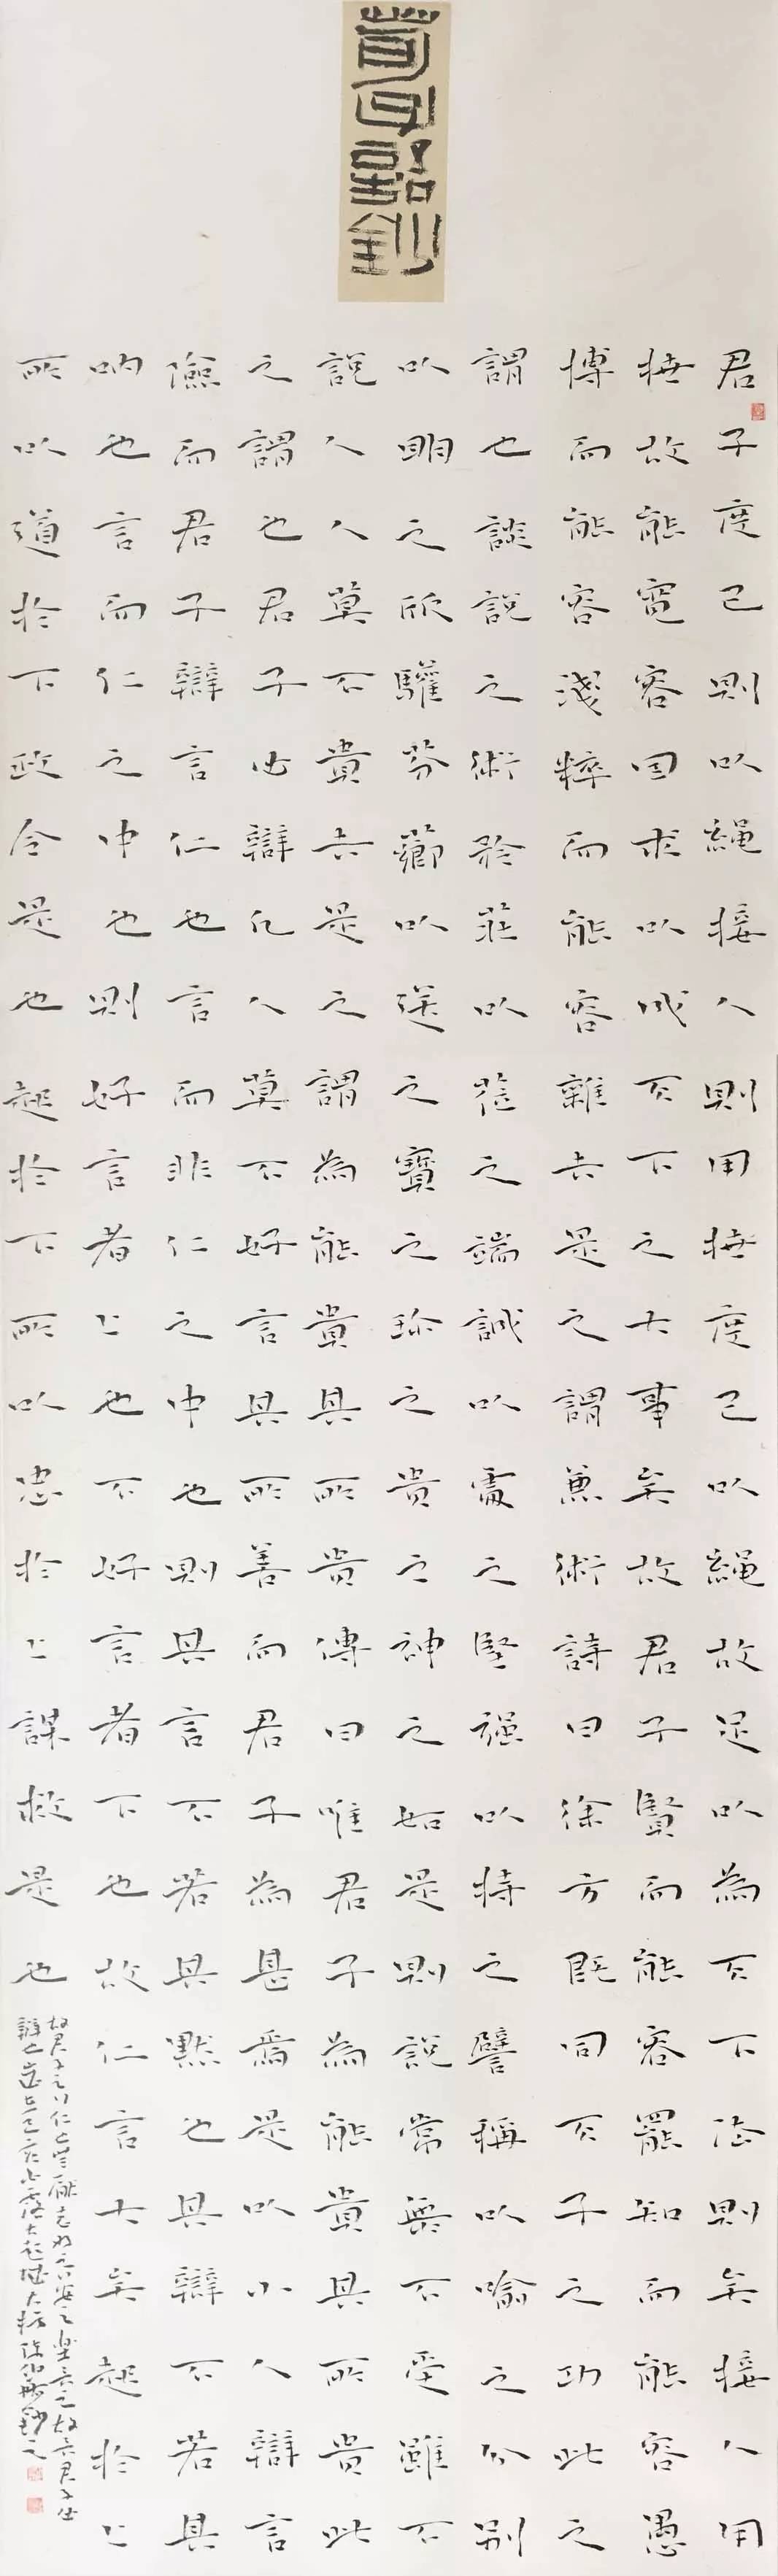 荀子語鈔
君子度己則以繩接人則用抴度己以繩故足以為天下法則矣接人用
抴故能寬容因求以成天下之大事矣故君子賢而能容罷知而能容愚
博而能容淺粹而能容雜夫是之謂兼術詩曰徐方既同天子之功此之
謂也談說之術矜莊以蒞之端誠以處之堅強以持之譬稱以喻之分別
以明之欣驩芬薌以送之寶之珍之貴之神之如是則說常無不受雖不
說人人莫不貴夫是之謂為能貴其所貴傳曰唯君子為能貴其所貴此
之謂也君子必辯凡人莫不好言其所善而君子為甚焉是以小人辯言
險而君子辯言仁也言而非仁之中也則其言不若其默也其辯不若其
吶也言而仁之中也則好言者上也不好言者下也故仁言大矣起於上
所以道於下政令是也起於下所以忠於上謀救是也
故君子之行仁也無厭志好之行安之樂言之故言君子必
辯也歲在己亥鈔之